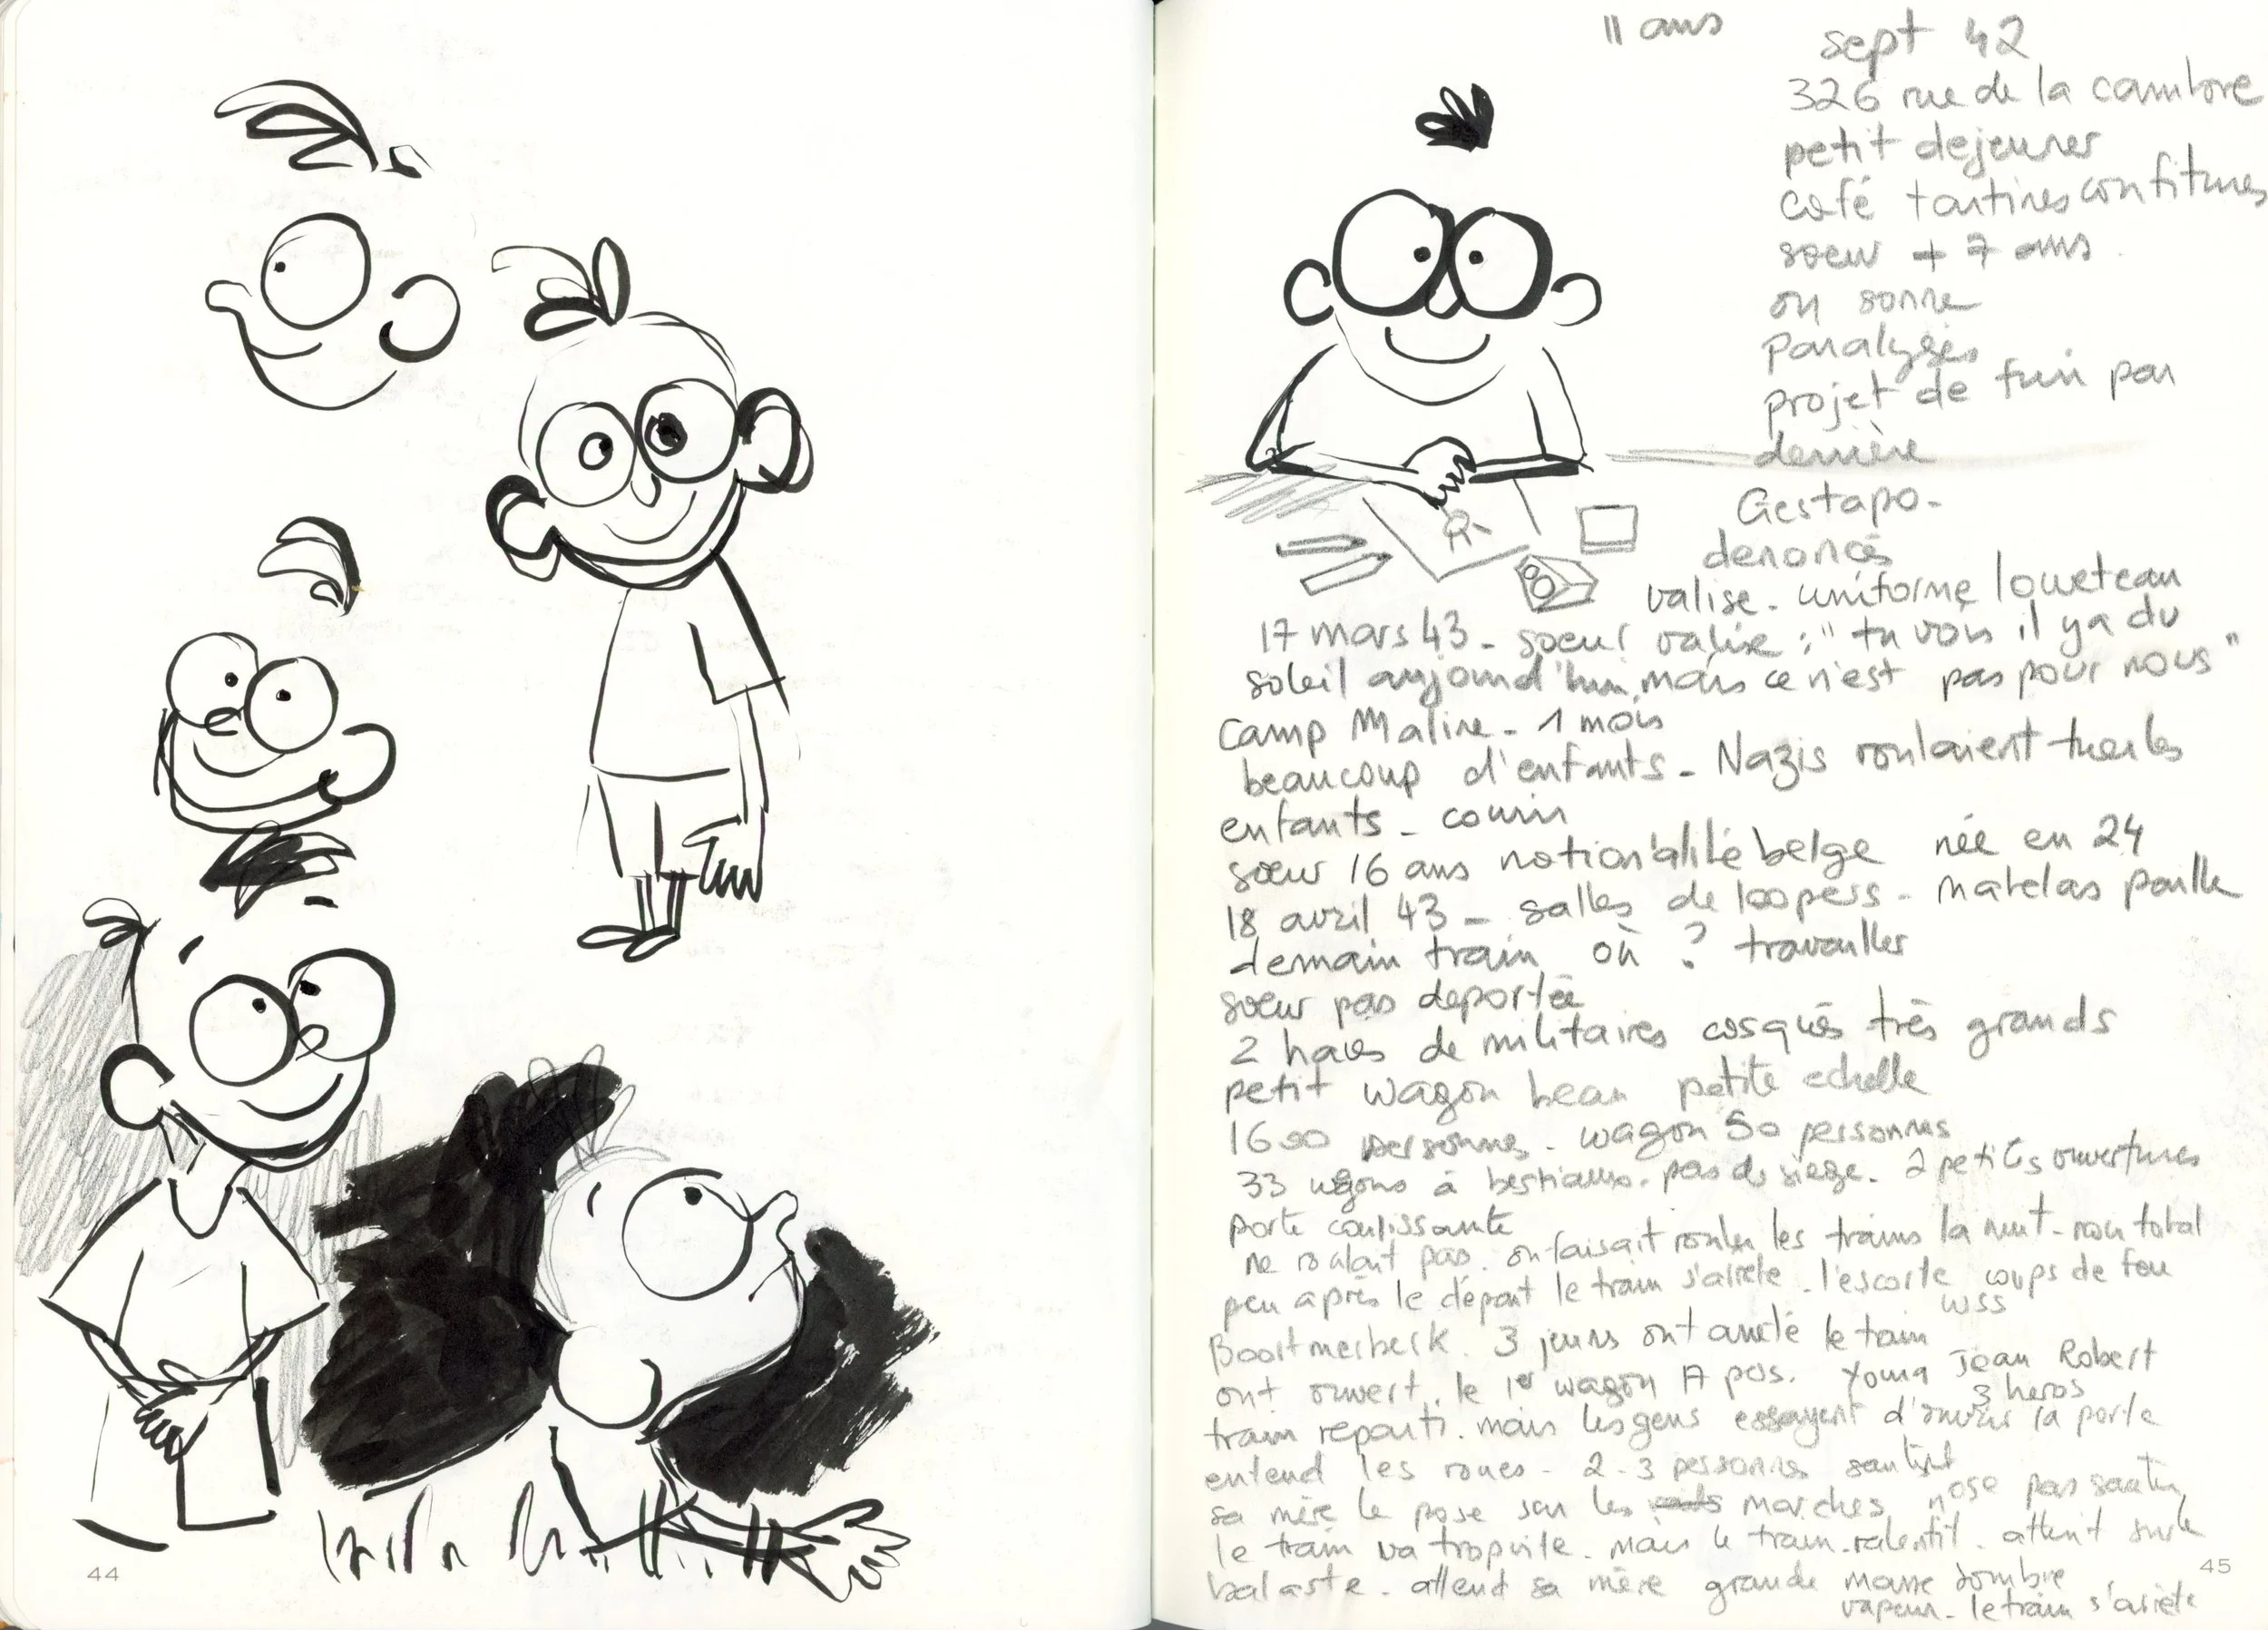 11 ans
sept 42
326 rue de la cambre
petit dejeuner
café tartines confitures
soeur + 7 ans
on sonne
paralysés
projet de fuir par
derrière
Gestapo -
denoncés
valise - uniforme louveteau
17 mars 43 - soeur valise : " tu vois il y a du
soleil aujourd'hui, mais ce n'est pas pour nous "
Camp Maline - 1 mois
beaucoup d'enfants - Nazis voulaient tuer les
enfants - courir
soeur 16 ans nationalité belge née en 24
18 avril 43 - salles de loopers - matelas paille
demain train où ? travailler
soeur pas deportée
2 haies de militaires casqués très grands
petit wagon beau petite echelle
1600 personnes - wagon 50 personnes
33 wagons à bestiaux. pas de siège. 2 petites ouvertures
porte coulissante
ne roulait pas. on faisait rouler les trains la nuit - noir total
peu après le départ le train s'arrete. l'escorte coups de feu
Boortmerbeek. 3 jeunes ont arrêté le train
ont ouvert le 1er wagon A pos. Youra Jean Robert
3 heros
train reparti. mais les gens essayent d'ouvrir la porte
entend les roues - 2-3 personnes sautent
sa mère le pose sur les marches n'ose pas sauter
le train va trop vite. mais le train ralentit. atterrit sur le
balaste - attend sa mère grande masse sombre
vapeur - le train s'arrête
44
45